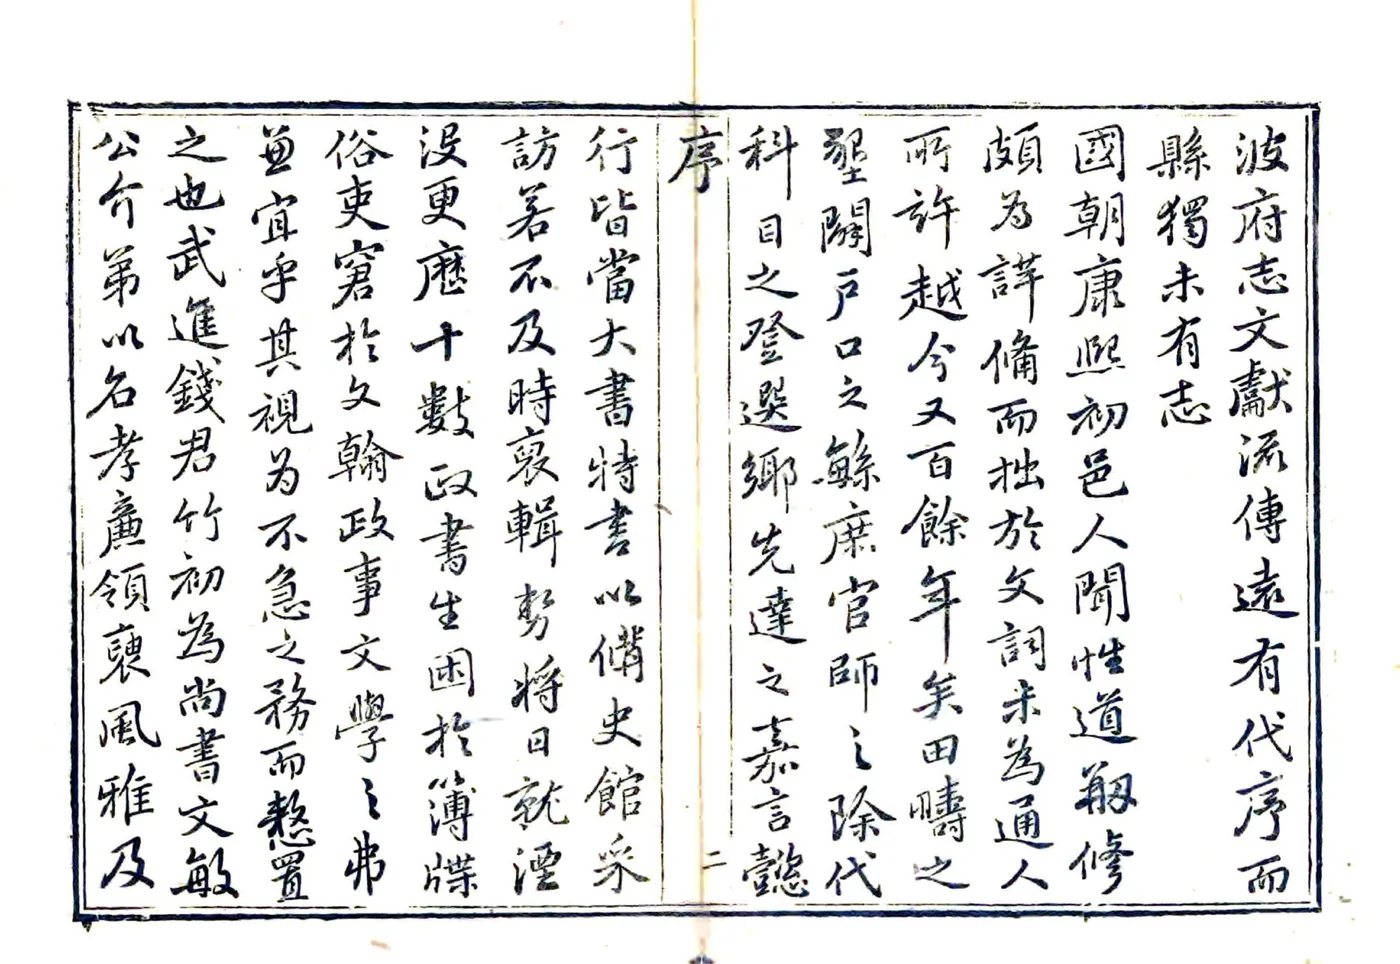 波府志文獻流傳遠有代序而
縣獨未有志
國朝康熙初邑人聞性道刱修
頗為詳備而拙於文詞未為通人
所許越今又百餘年矣田疇之
墾闢戶口之繇庶官師之除代
科目之登選鄉先達之嘉言懿
序
二
行皆當大書特書以備史館采
訪若不及時裒輯勢將日就湮
沒更歷十數政書生困於簿牒
俗吏窘於文翰政事文學之弗
兼宜乎其視為不急之務而憗置
之也武進錢君竹初為尚書文敏
公介弟以名孝廉領褎風雅及